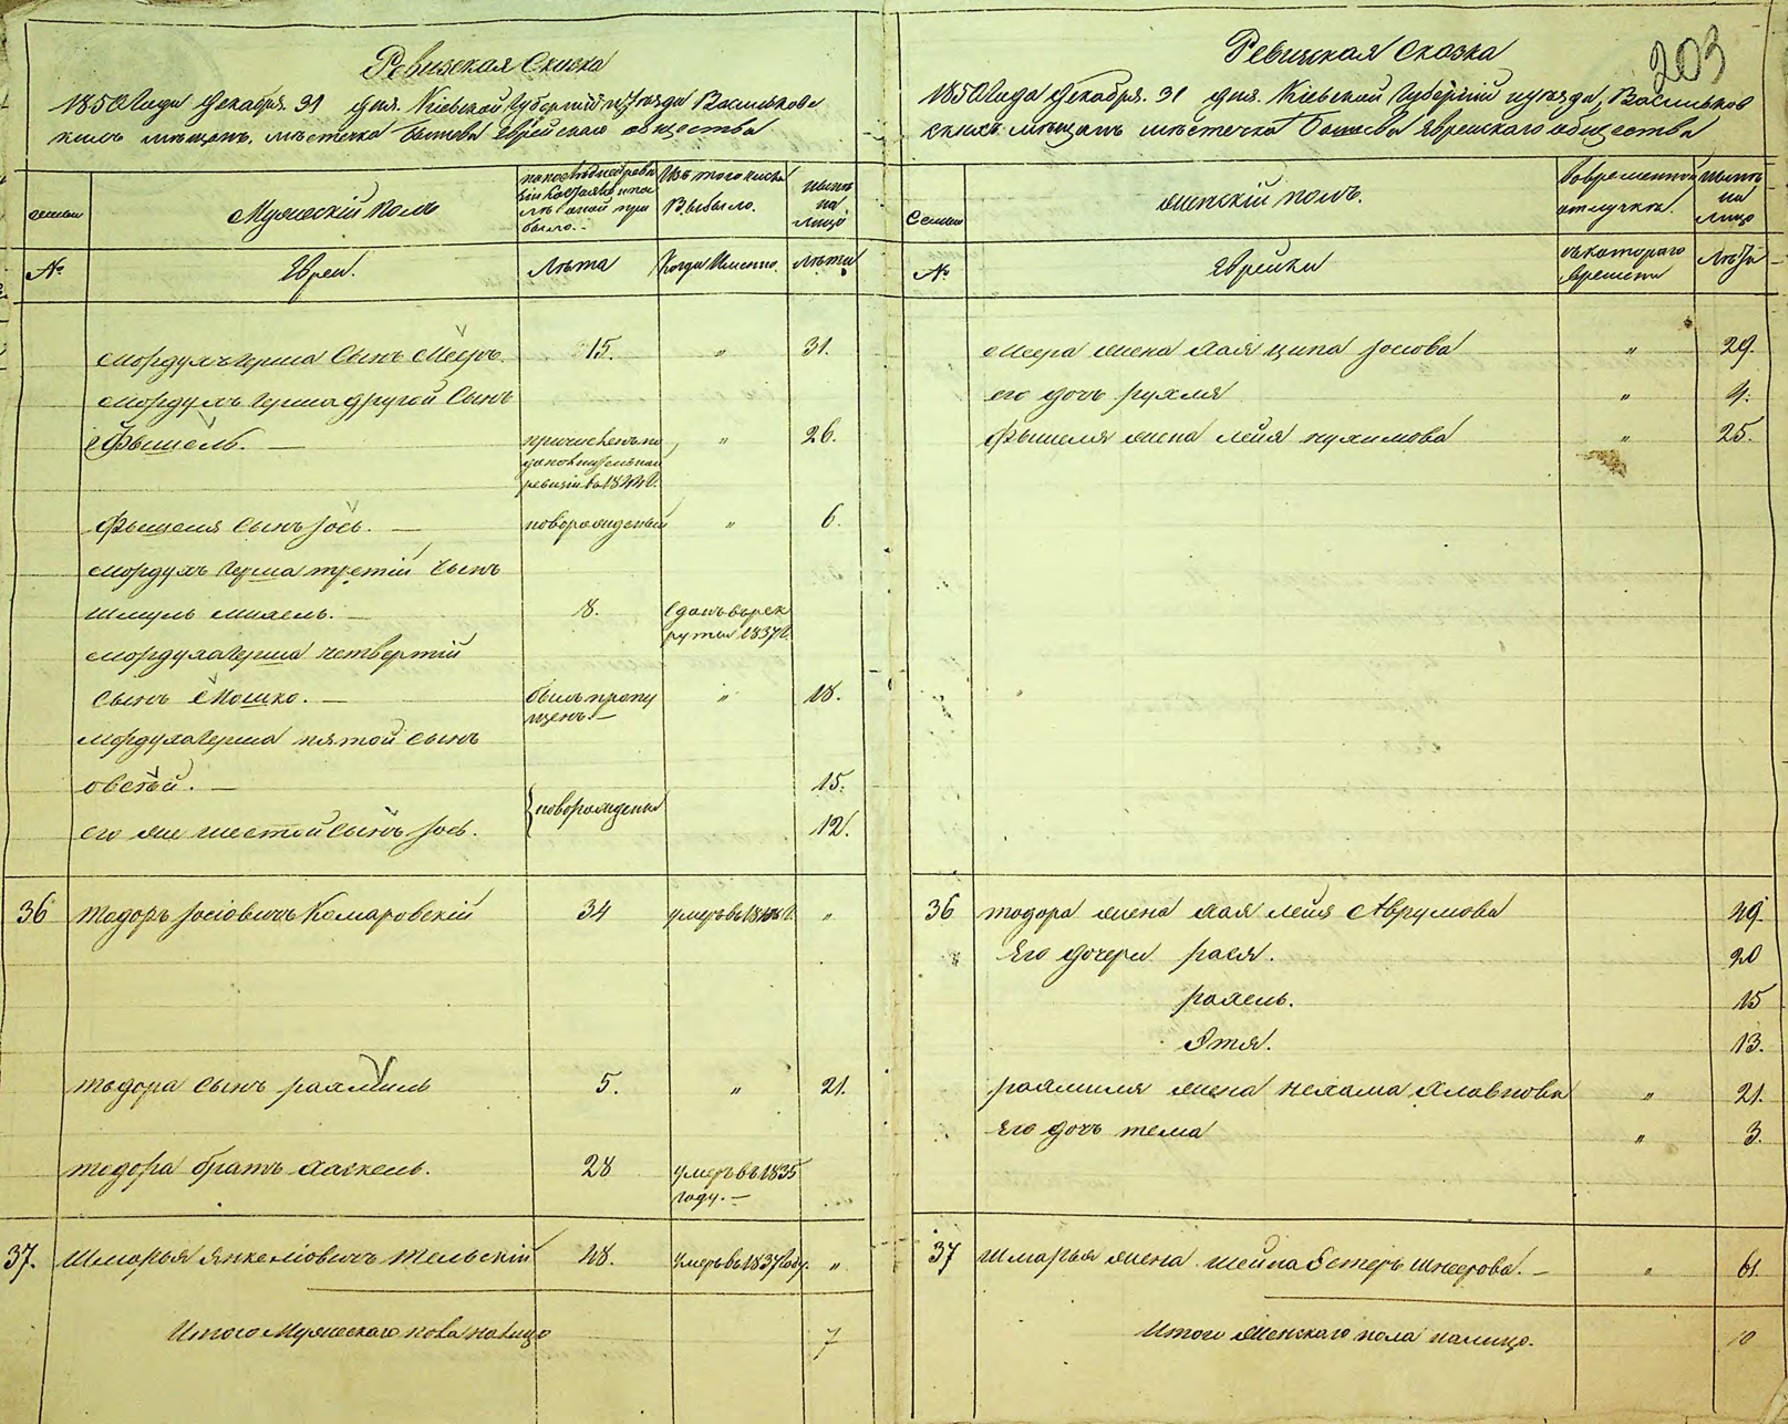 Ревизская Сказка
1850 Года Декабря 31 дня. Кіевской Губерніи и Уезда Васильков
скихъ мѣщанъ, мѣстечка Еврейскаго общества
семьи
Мужескій полъ
по послѣдней реви
зіи состояло и пос
лѣ оной при
было.
Изъ того числа
Выбыло.
нынѣ
на
лицо
№
Евреи.
Лѣта
Когда Именно.
Лѣта
Мордухъ Герша Сынъ Мееръ. 15. " 31.
Мордухъ Герша другой Сынъ
Фышель. — причисленъ по " 26.
дополнительной
ревизіи въ 1844 г.
Фышеля сынъ Іось. — новорожденый " 6.
Мордухъ Герша третій Сынъ
Шмуль Михель. — 8. Сданъ въ рек
руты 1837 г.
Мордуха Герша четвертій
сынъ Мошко. — былъ пропу " 18.
щенъ. —
Мордуха Герша пятой сынъ
Овсѣй. — 15.
{новорождены
его же шестой сынъ Іось. 12.
36 Тодоръ Іосіовичъ Комаровскій 34 умеръ въ "
Тодора сынъ Рахмиль 5. " 21.
Тодора братъ Хаскель. 28 умеръ въ 1835
году. —
37. Шмарья Янкеліовичъ Тельскій 48. Умеръ въ 1837 году. "
Итого Мужескаго пола налицо 7
203
Ревизская Сказка
1850 Года Декабря. 31 дня. Кіевской Губерніи и уезда, Васильков
скихъ мѣщанъ мѣстечка Еврейскаго общества
Семьи
женскій полъ.
Во временной
отлучкѣ.
нынѣ
на
лицо
№
Еврейки
съ котораго
времени
Лѣта
Меера жена Хая Ципа Іосіова " 29.
его дочь Рухля " 4.
Фышеля жена Лейя Нухимова " 25.
36 Тодора жена Хая Лейя Аврумова 49.
Его дочери Рася. 20
Рахель. 15
Этя. 13.
Рахмиля жена Нехама Хлавнова " 21.
Его дочь Тема " 3.
37 Шмарья жена Шейна Естеръ Шнеерова. — " 61.
Итого женскаго пола налицо. 10